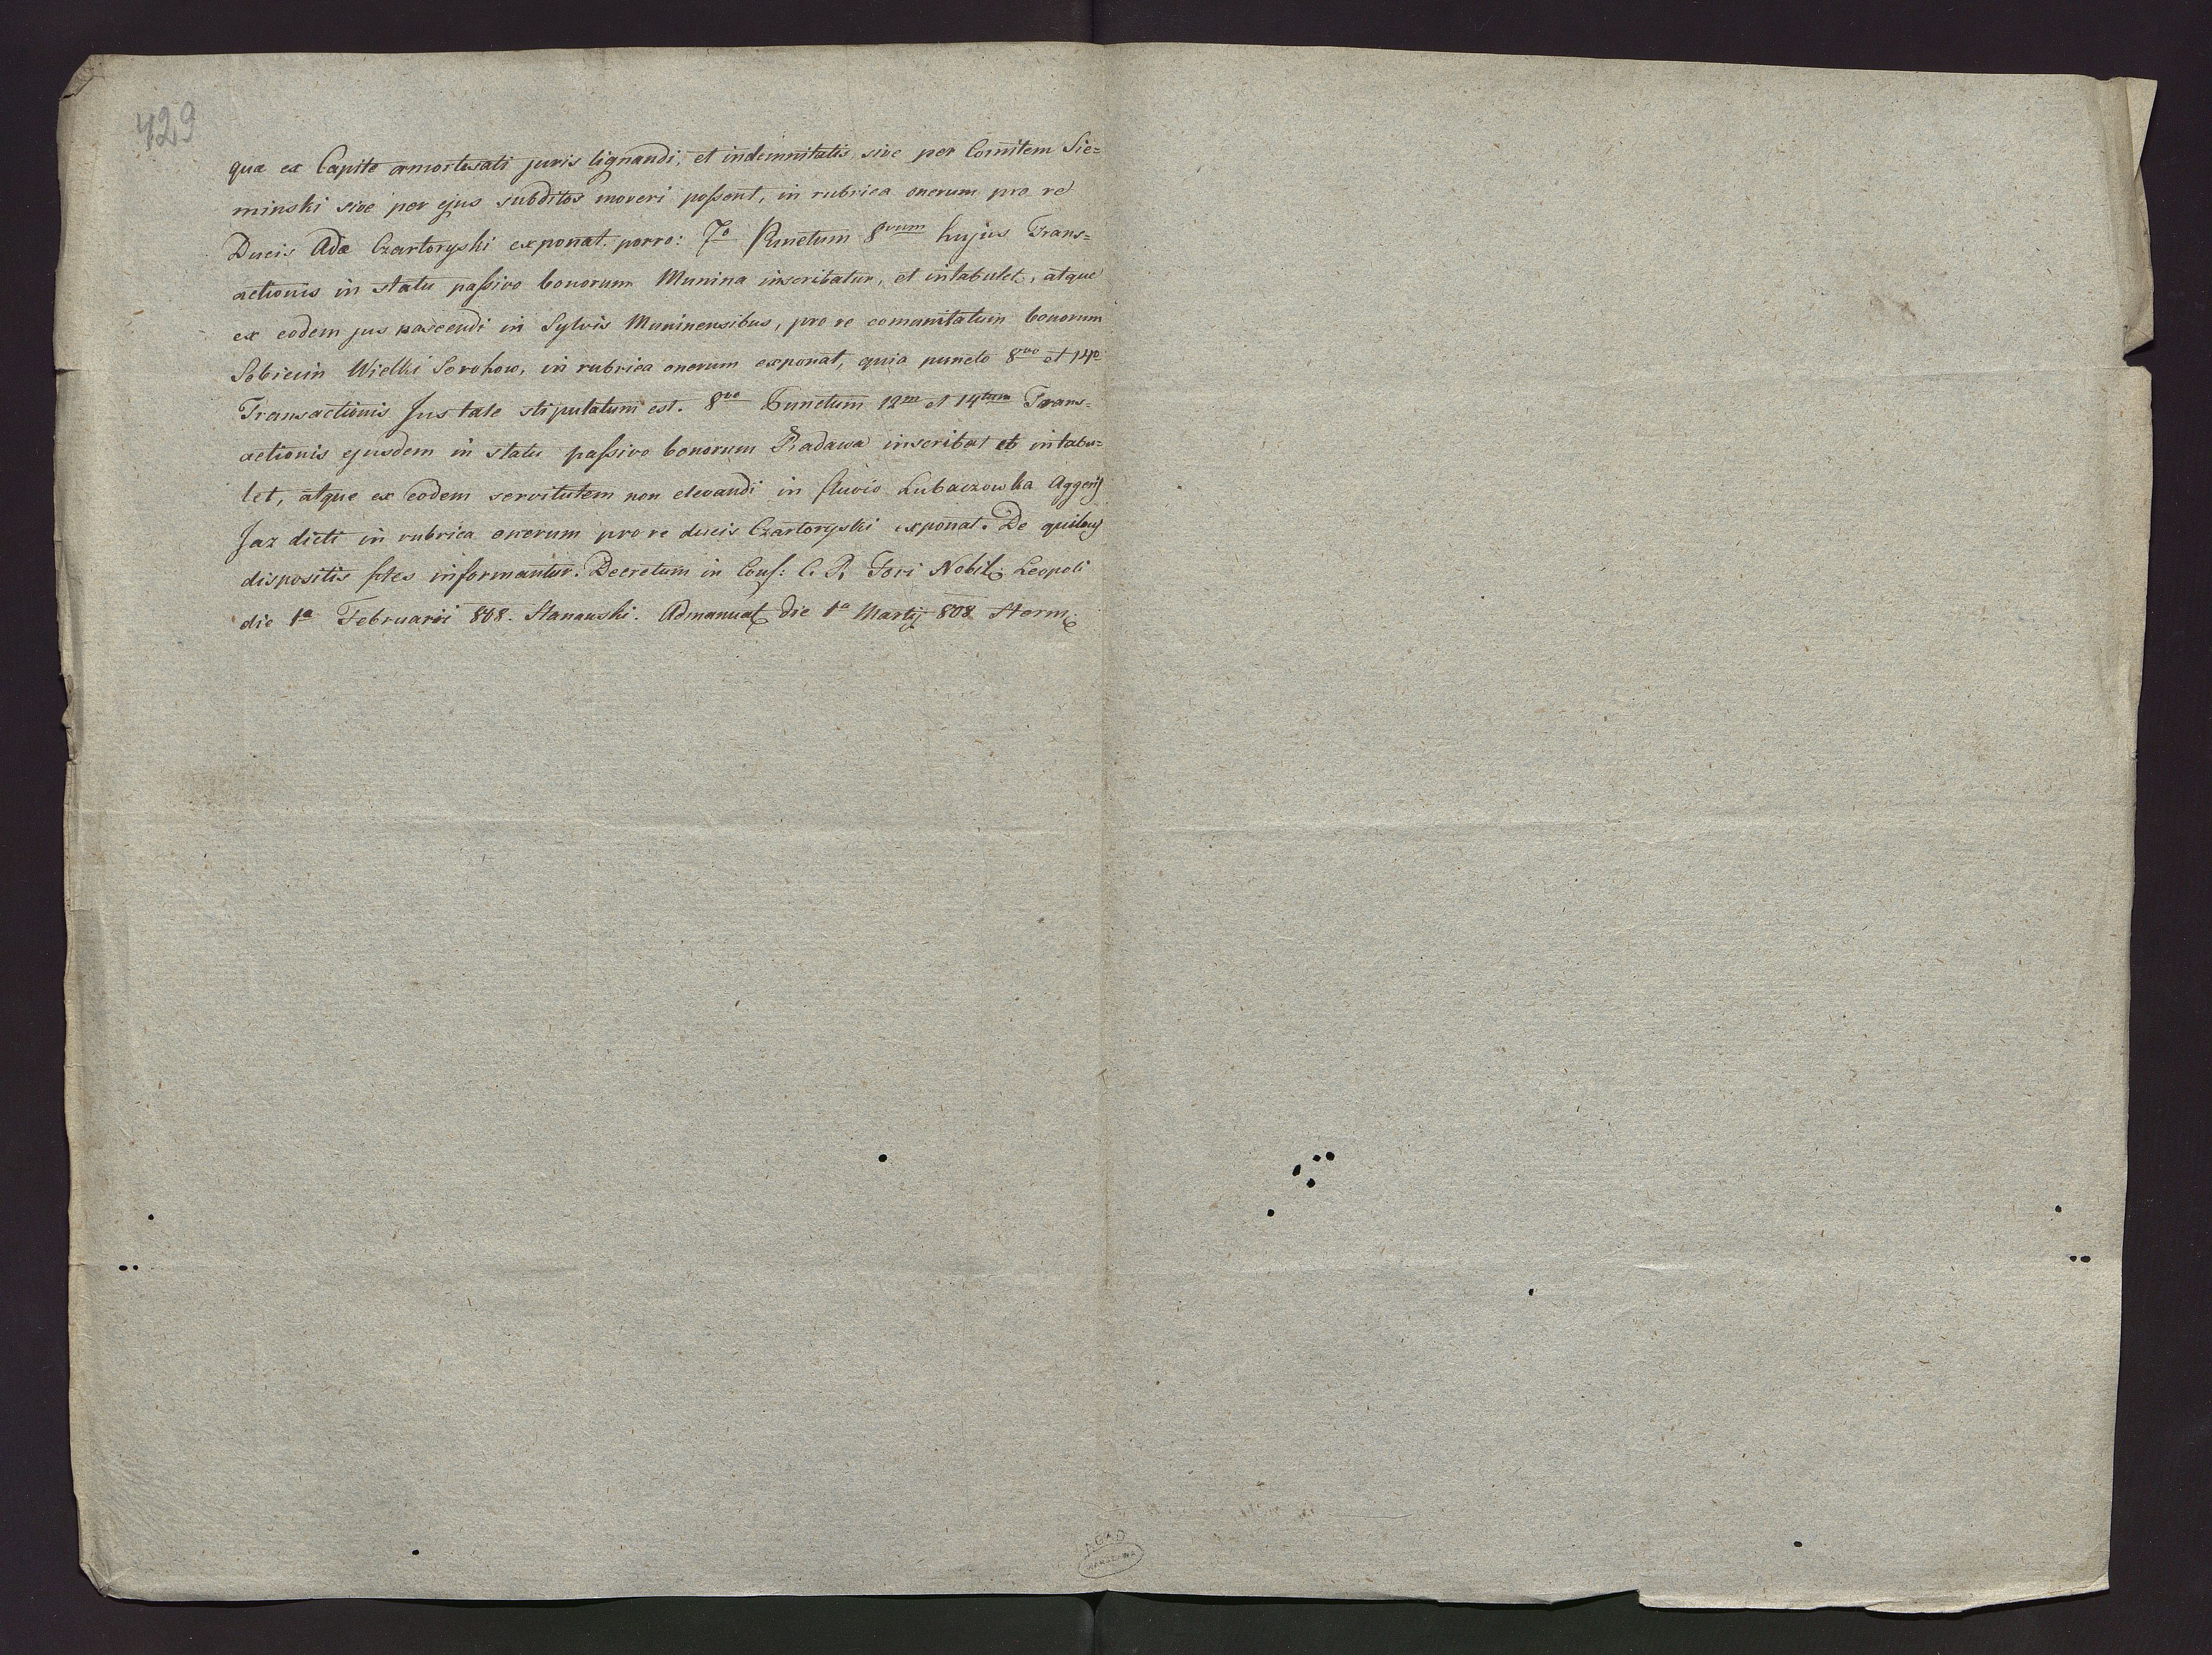 429
quæ ex Capite amortisati juris lignandi, et indemnitatis sive per Comitem Sie=
minski sive per ejus subditos moveri possent, in rubrica onerum pro re
Ducis Adæ Czartoryski exponat. porro: 7o Punctum 8vum hujus Trans=
actionis in statu passivo bonorum Munina inscribatur, et intabulet, atque
ex eodem jus pascendi in Sylvis Muninensibus, pro re comunitatum bonorum
Sobiecin Wielki Sorohow, in rubrica onerum exponat, quia puncto 8vo et 14o
Transactionis Jus tale stipulatum est. 8vo Punctum 12m et 14tum Trans=
actionis ejusdem in statu passivo bonorum Radawa inscribat et intabu=
let, atque ex eodem servitutem non elevandi in fluvio Lubaczowka Aggeris
Jaz dicti in rubrica onerum pro re ducis Czartoryski exponat. De quibus
dispositis ptes informantur. Decretum in Cons: C. R. Fori Nobil. Leopoli
die 1a Februarii 808. Stanawski. Admanuat die 1a Martij 808
AGAD
WARSZAWA